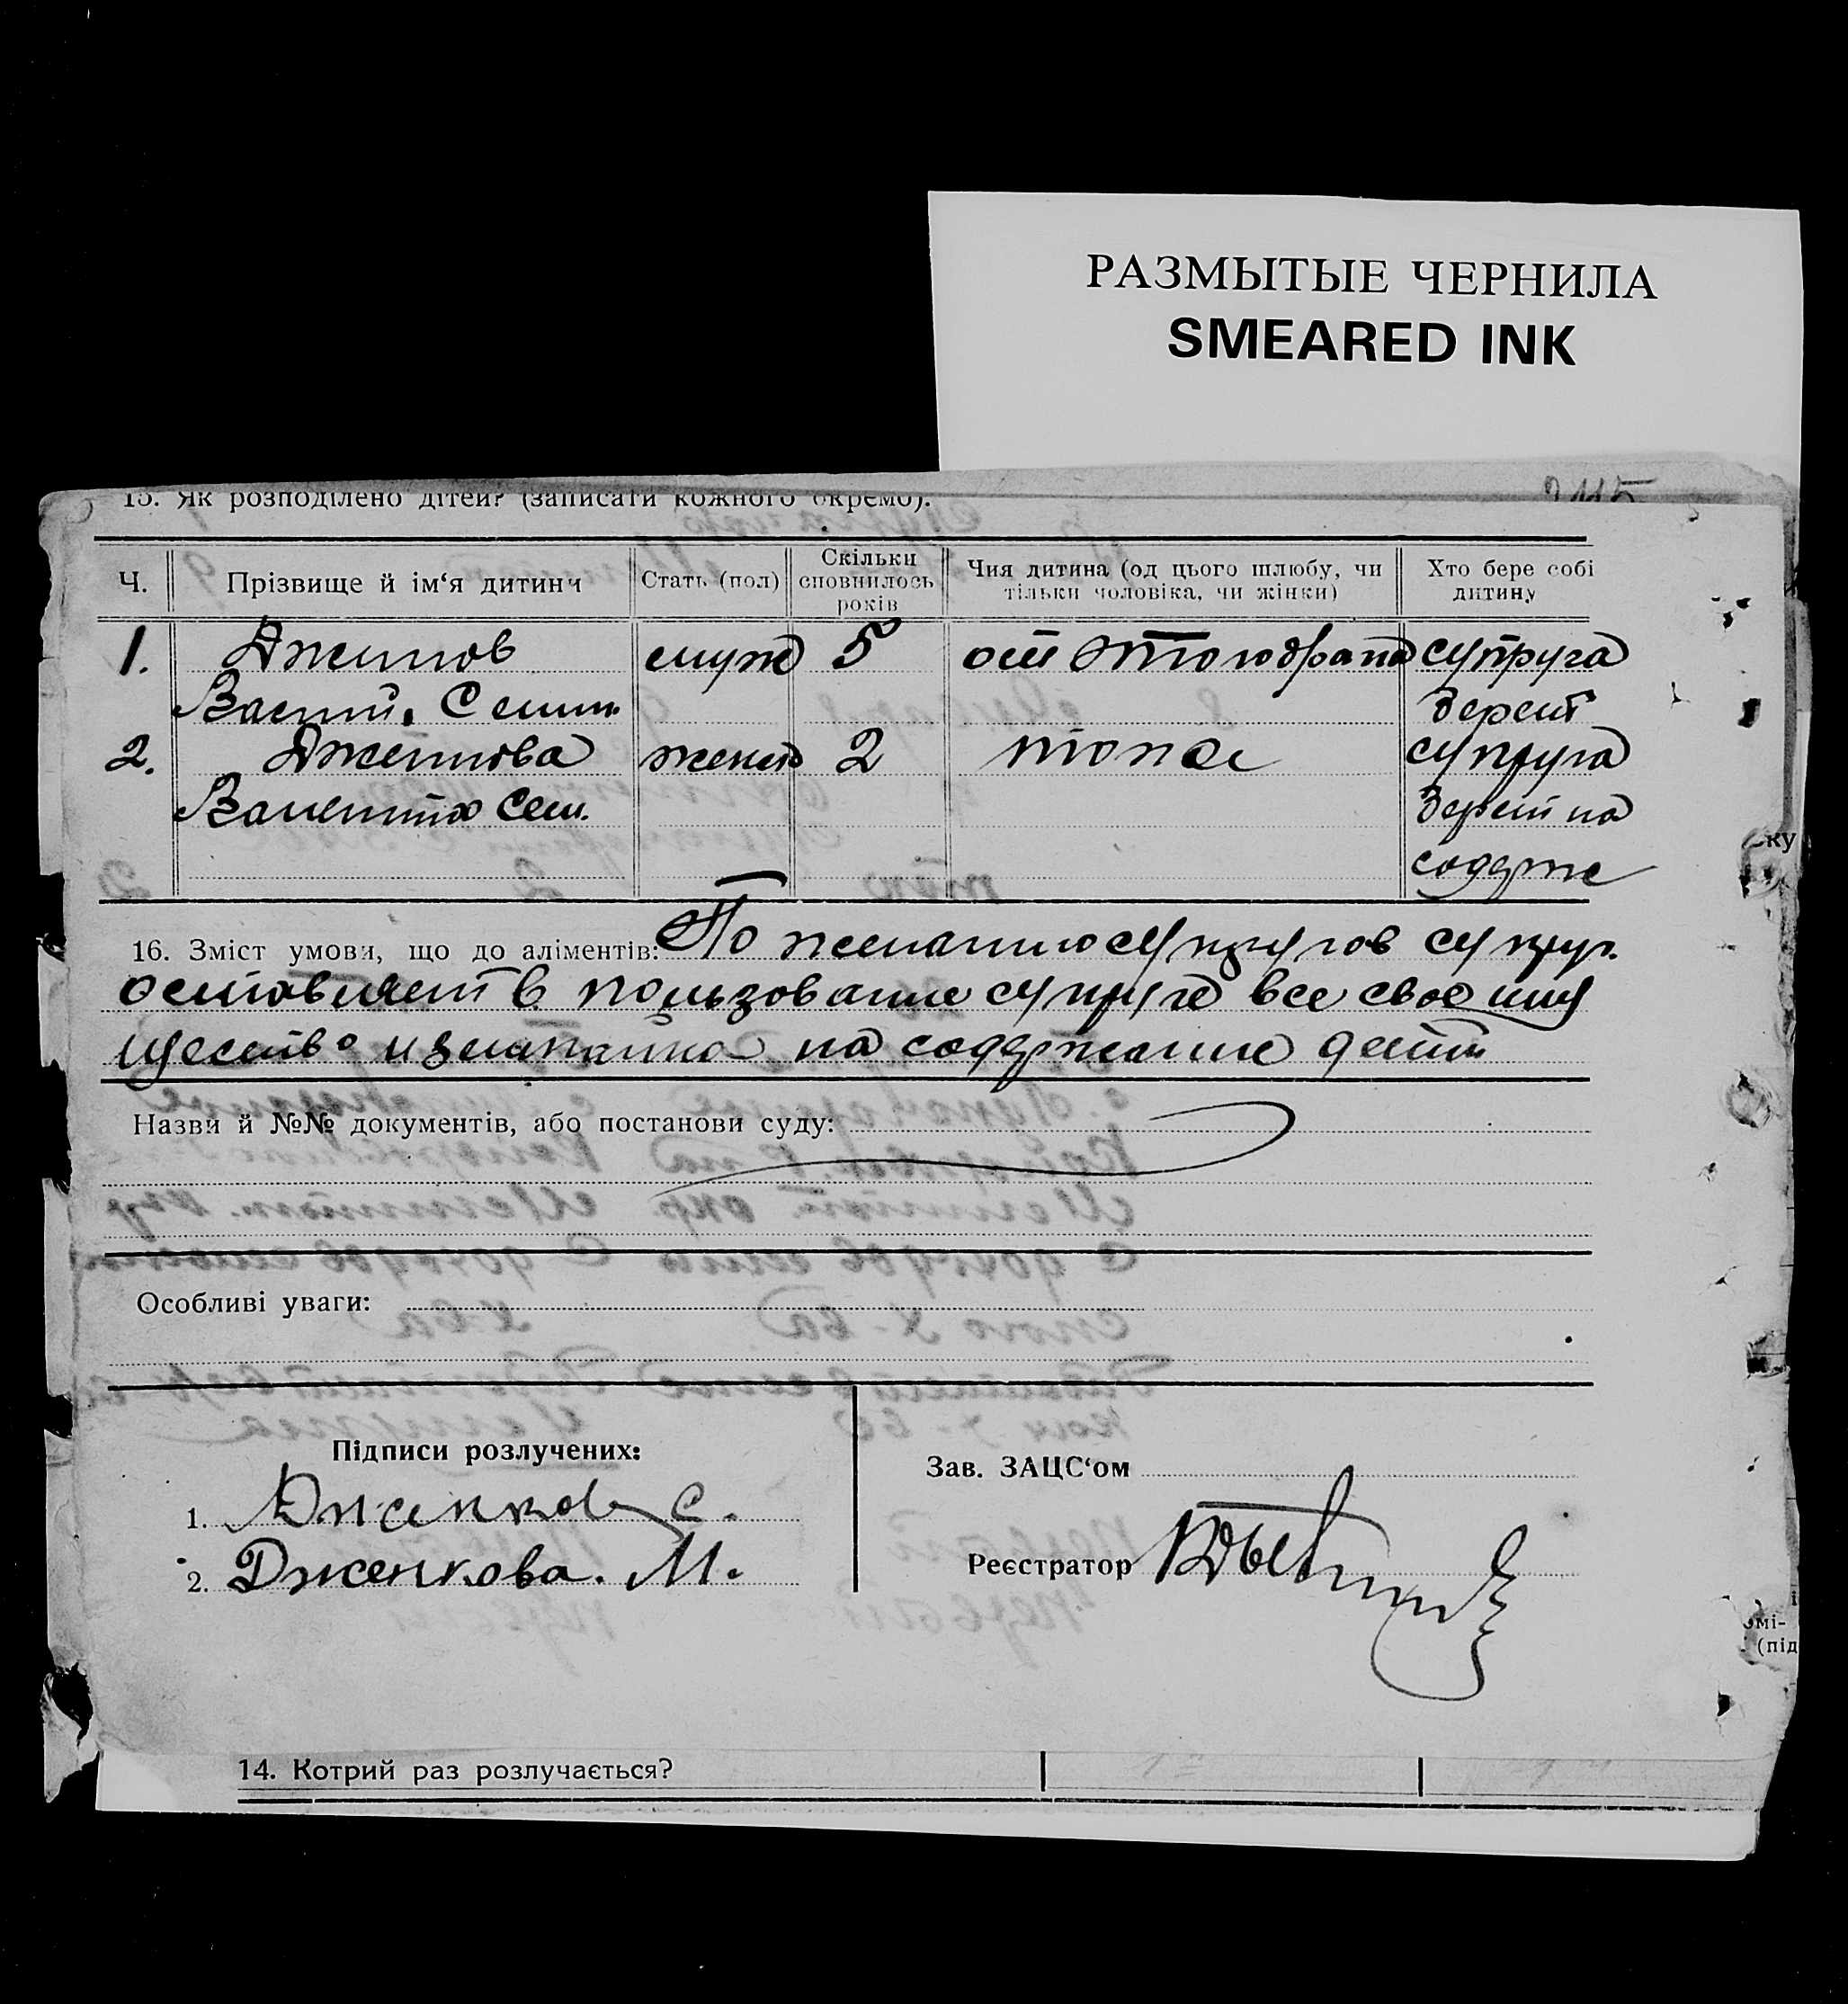 РАЗМЫТЫЕ ЧЕРНИЛА
SMEARED INK
15. Як розподілено дітей? (записати кожного окремо).
Ч.
Прізвище й ім‘я дитини
Стать (пол)
Скільки сповнилось років
Чия дитина (од цього шлюбу, чи тільки чоловіка, чи жінки)
Хто бере собі дитину
1. мужс 5 от этого брака супруга
Васил. Семен. берет
2. женск 2 тоже супруга
Валентина Сем. берет на
содерже
16. Зміст умови, що до аліментів: По желанию супругов супруг.
оставляет в пользование супруге все свое иму
щество на содержание детей
Назви й №№ документів, або постанови суду:
Особливі уваги:
Підписи розлучених:
1. Дженков С.
2. Дженкова. М.
Зав. ЗАЦС‘ом
Реєстратор
14. Котрий раз розлучається?